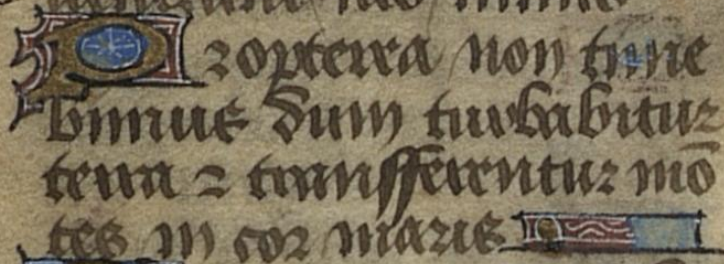 Propterea non time
bimus dum turbabitur
terra ⁊ transferentur mō
tes in cor maris